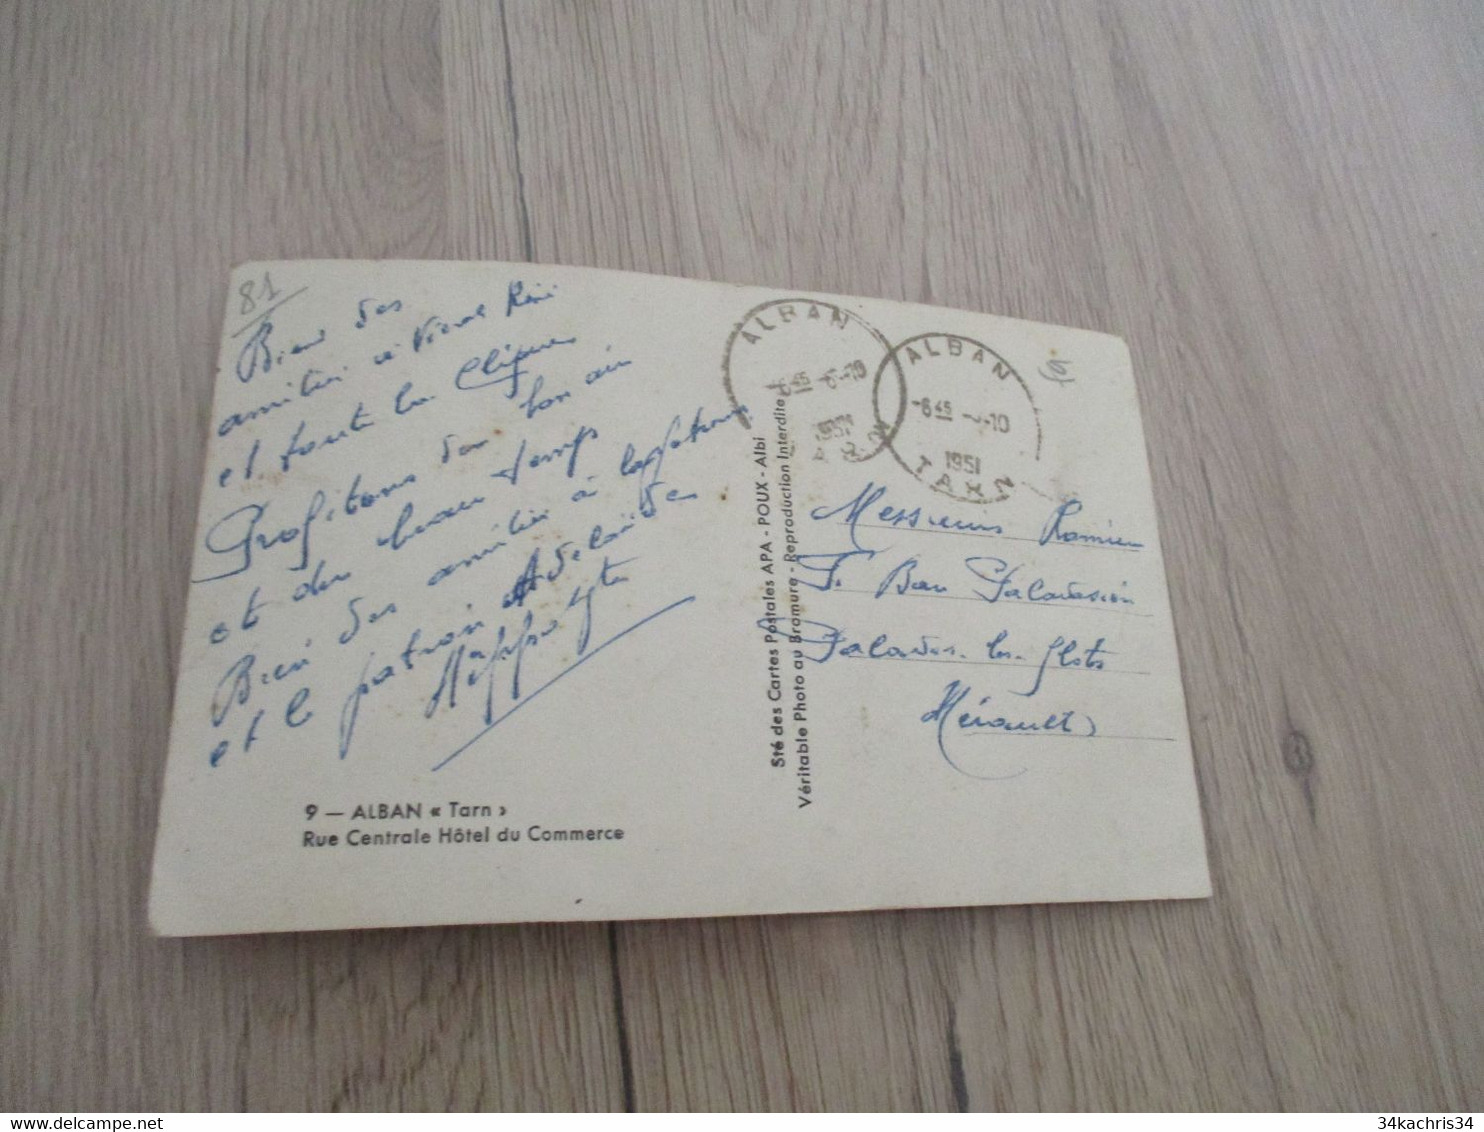 81
Bien des
amitiés à René
et toute la clique
Profitons du bon air
et du beau temps
Bien des amitiés à la patronne
et le patron Adelaïde
Hyppolyte
9 — ALBAN « Tarn »
Rue Centrale Hôtel du Commerce
Sté des Cartes Postales APA - POUX - Albi
Véritable Photo au Bromure - Reproduction Interdite
ALBAN
1951
ALBAN
-6 45 -10
1951
TARN
Messieurs Romieu
Bar Palavasien
Palavas-les-flots
Hérault
34kachris34